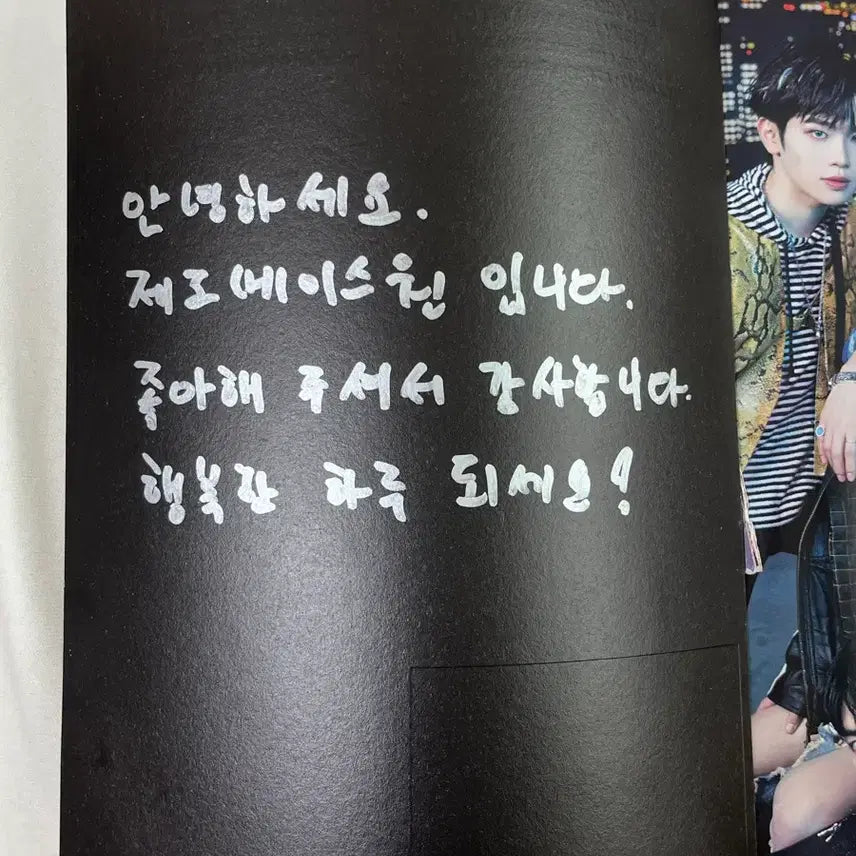 안녕하세요.
제로베이스원 입니다.
좋아해 주셔서 감사합니다.
행복한 하루 되세요!